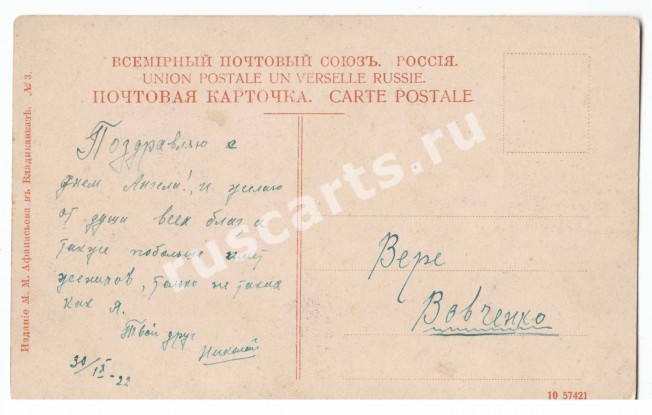 ВСЕМІРНЫЙ ПОЧТОВЫЙ СОЮЗЪ. РОССІЯ.
UNION POSTALE UN VERSELLE RUSSIE.
ПОЧТОВАЯ КАРТОЧКА. CARTE POSTALE
Изданіе М. М. Афанасьева въ Владикавказѣ. № 3.
Поздравляю с
днем Ангела!, и желаю
от души всех благ и
также побольше
только не таких
как я.
Твой друг
Николай
30/IX-22
Вере
Вовченко
10 57421
ruscarts.ru